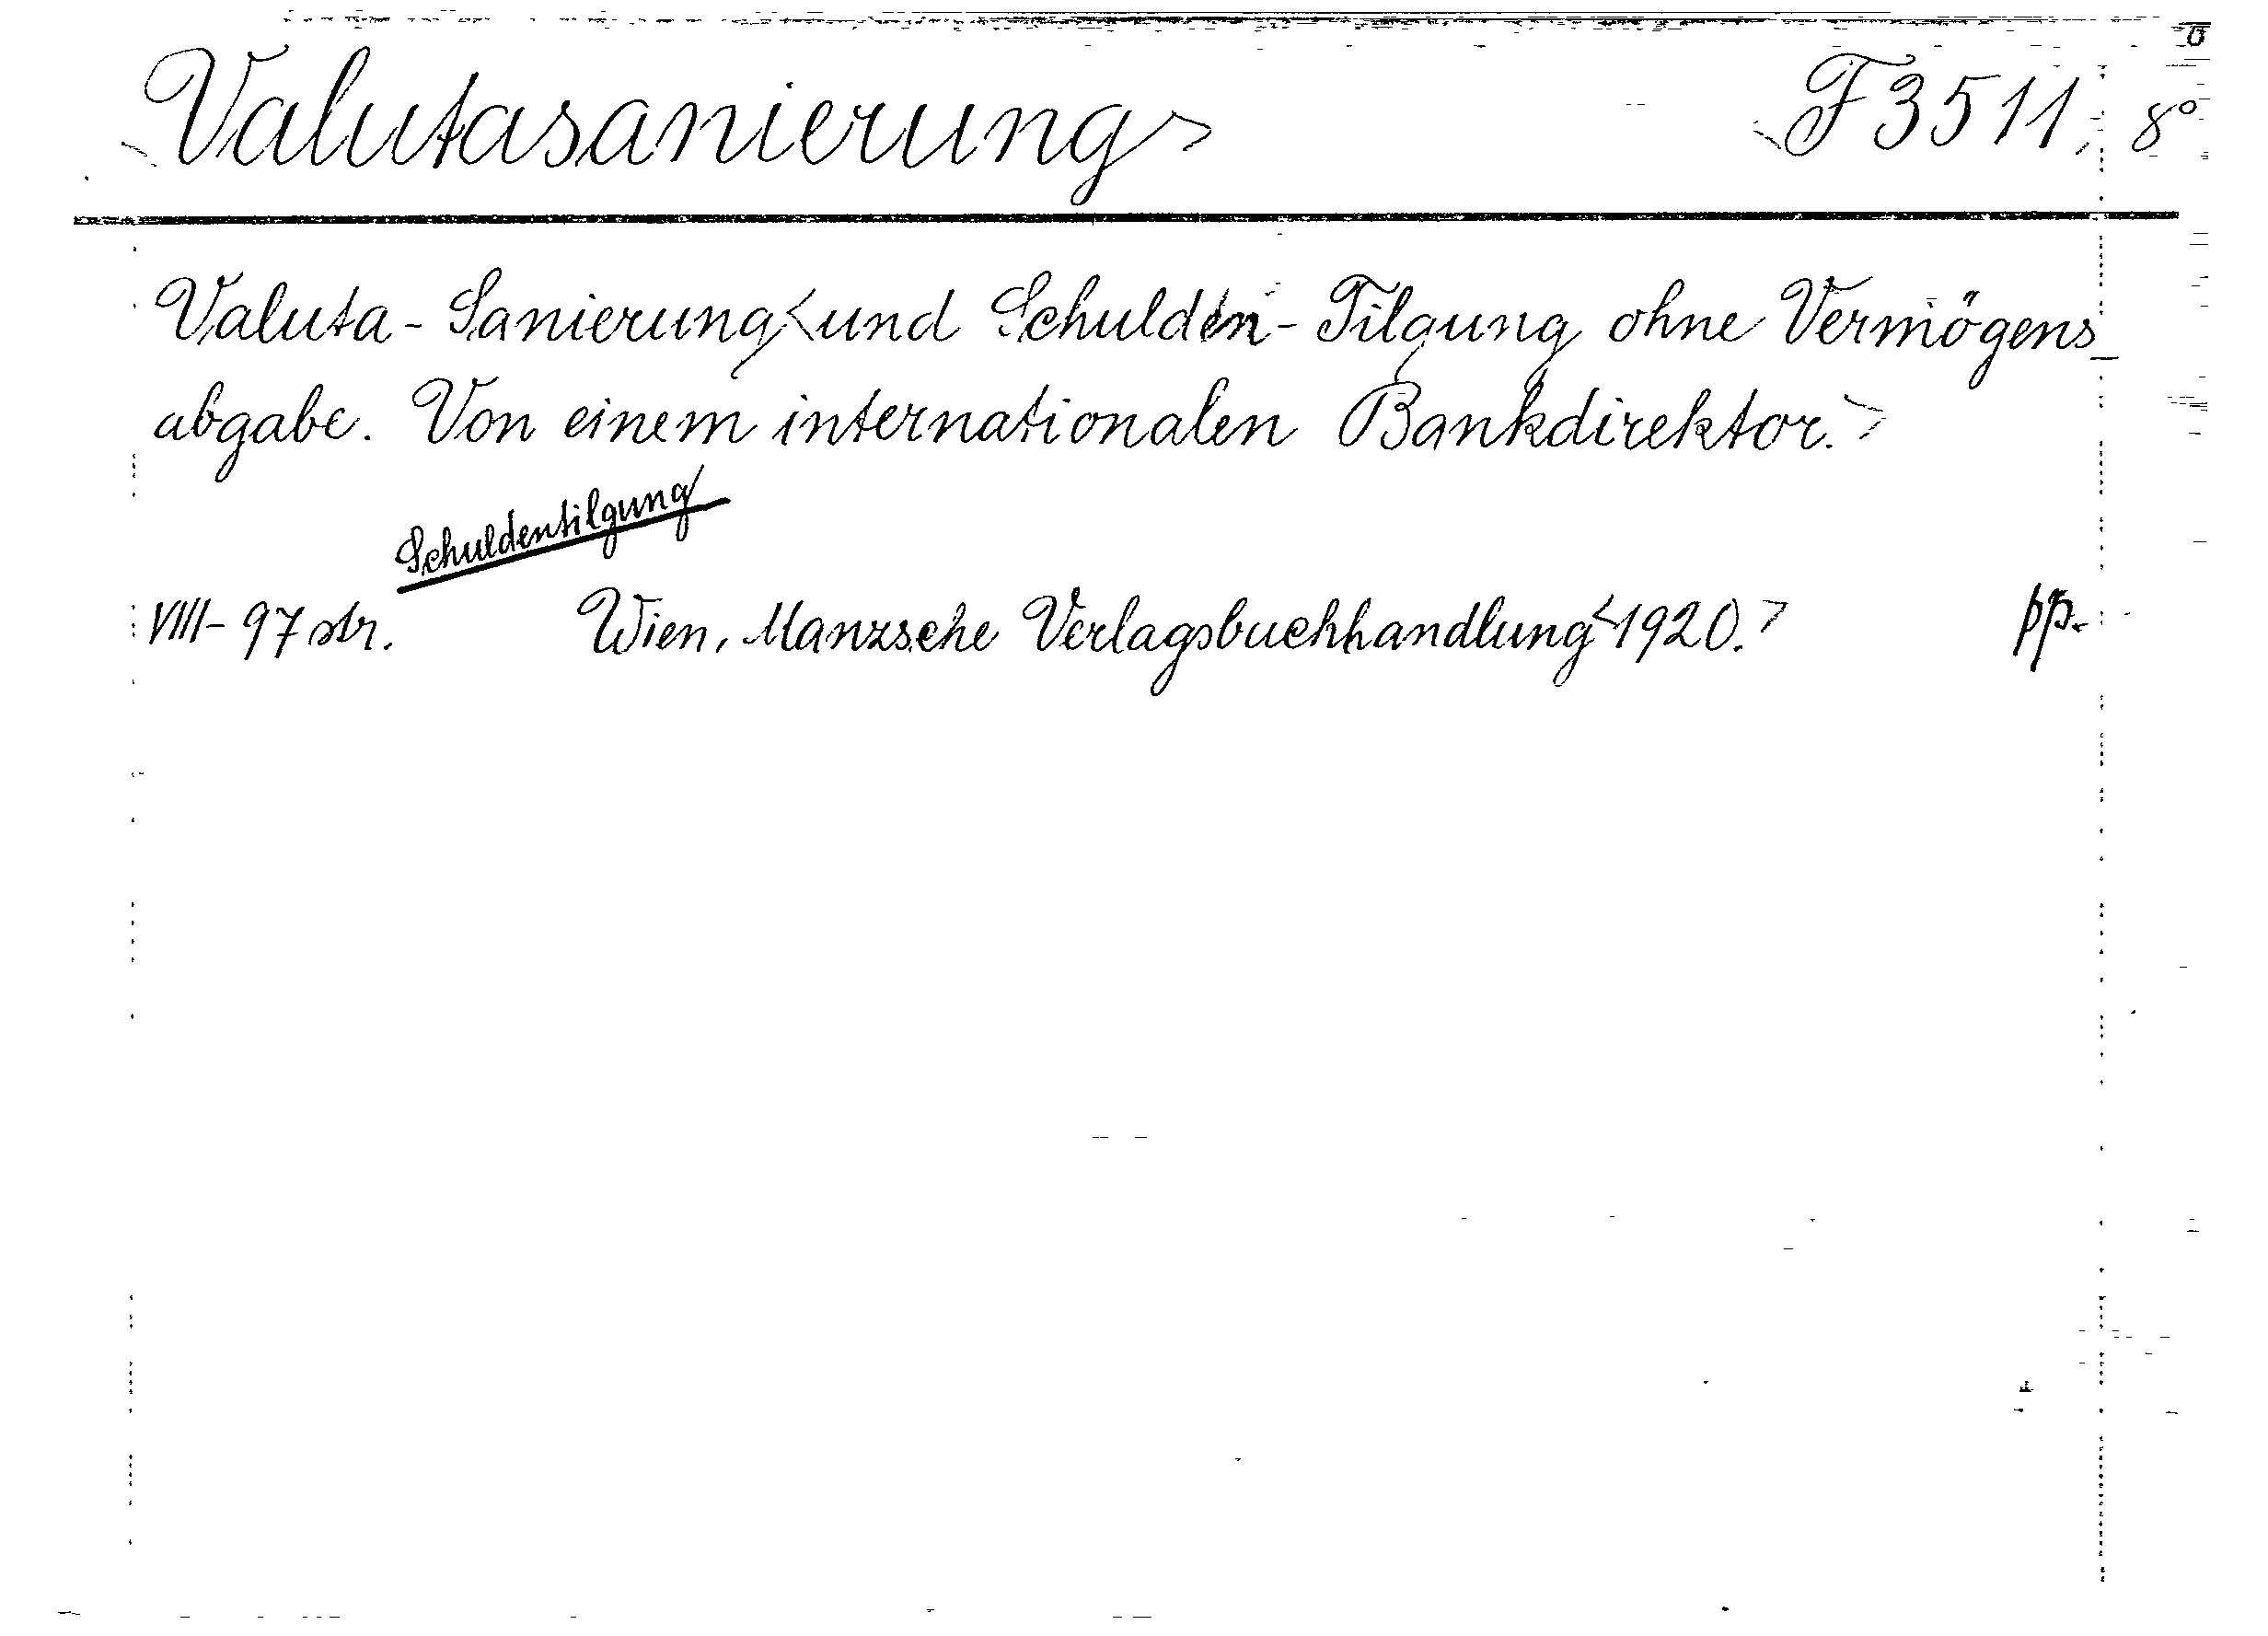 Valutasanierung> <F 3511, 8°
Valuta-Sanierung<und Schulden-Tilgung ohne Vermögens-
abgabe. Von einem internationalen Bankdirektor.>
Schuldentilgung
VIII-97 str. Wien, Manzsche Verlagsbuchhandlung<1920.> pp.